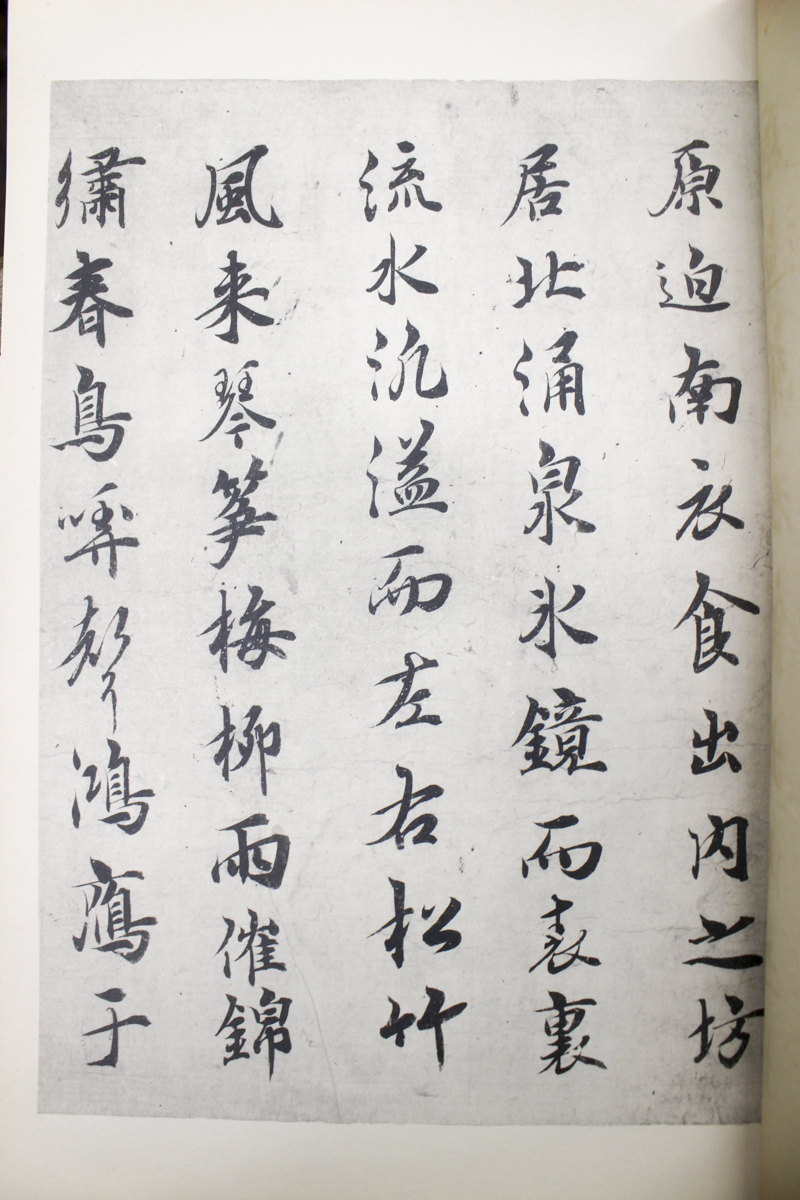 原迫南衣食出内之坊
居北涌泉氷鏡而表裏
流水汎溢而左右松竹
風来琴箏梅柳雨催錦
繡春鳥哢聲鴻鴈于